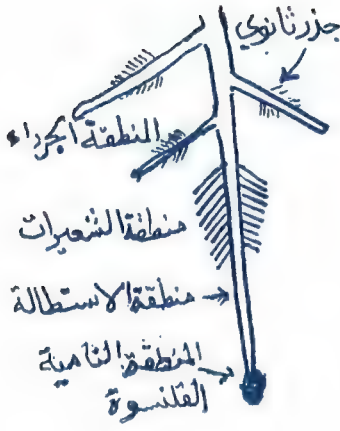 جذر ثانوي
المنطقة الجرداء
منطقة الشعيرات
منطقة الاستطالة
المنطقة النامية
القلنسوة